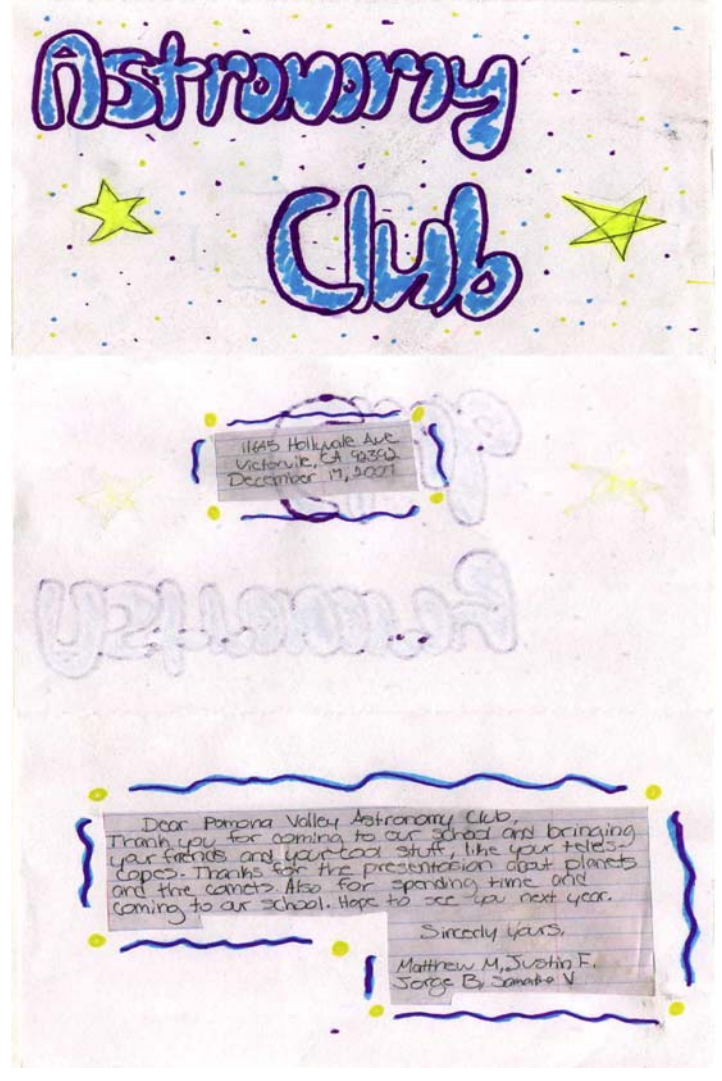 Astronomy
Club
11645 Hollyvale Ave
Victorville, CA 92392
December 17, 2007
Dear Pomona Valley Astronomy Club,
Thank you for coming to our school and bringing
your friends and your cool stuff, like your teles-
copes. Thanks for the presentasion about planets
and the comets. Also for spending time and
coming to our school. Hope to see you next year.
Sincerly yours,
Matthew M, Justin F.
Jorge B, Samantha V